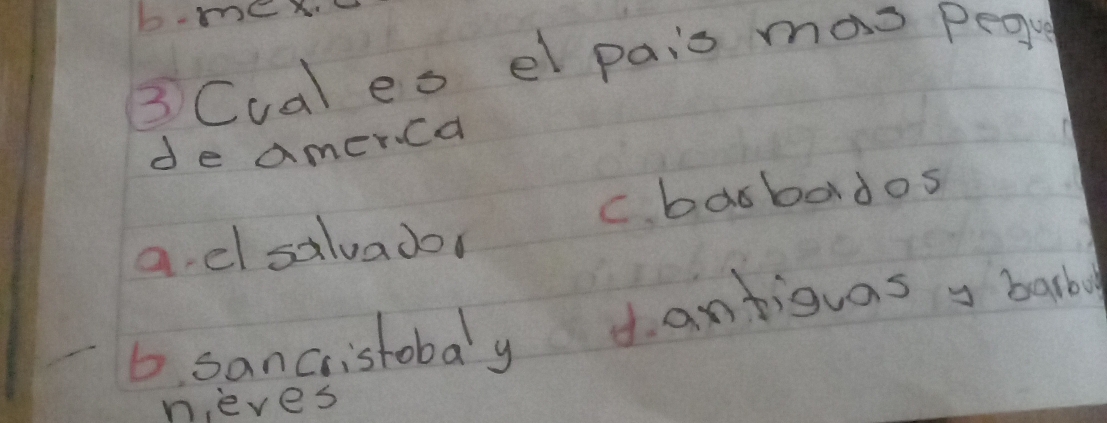 b.mex
③ Cual es el pais mas peque
de america
a.el salvador
c.basbados
b.sancristobal y
nieves
d.antiguas y barbu